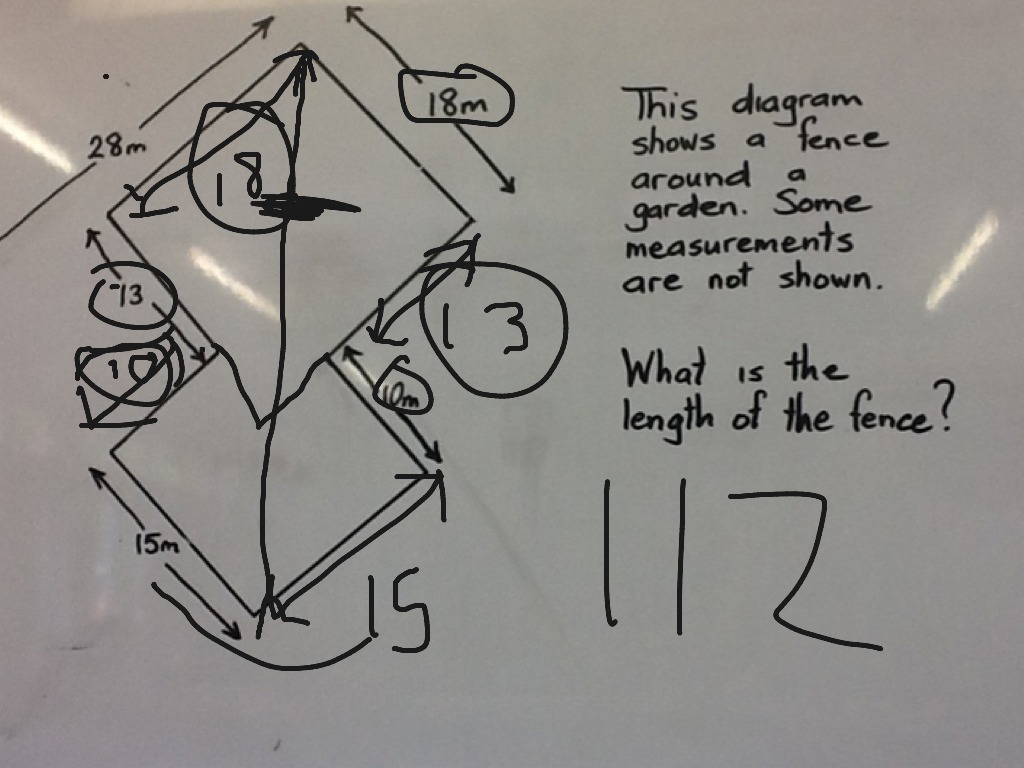 28m
18m
18
13
13
10
10m
15m
15
This diagram
shows a fence
around a
garden. Some
measurements
are not shown.
What is the
length of the fence?
112